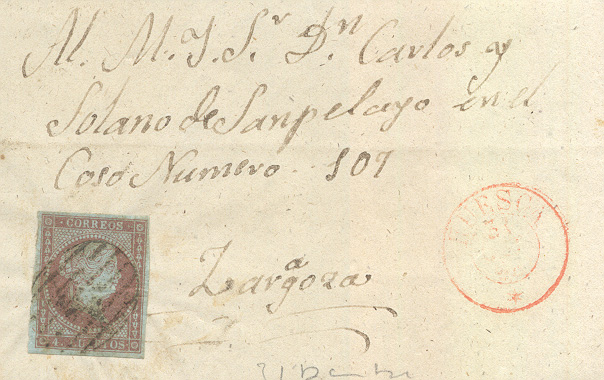 Al. M. I. S.r D.n Carlos y
Solano de Sanpelayo en el
Coso Numero 109
Zaragoza
CORREOS
CUARTOS
HUESCA